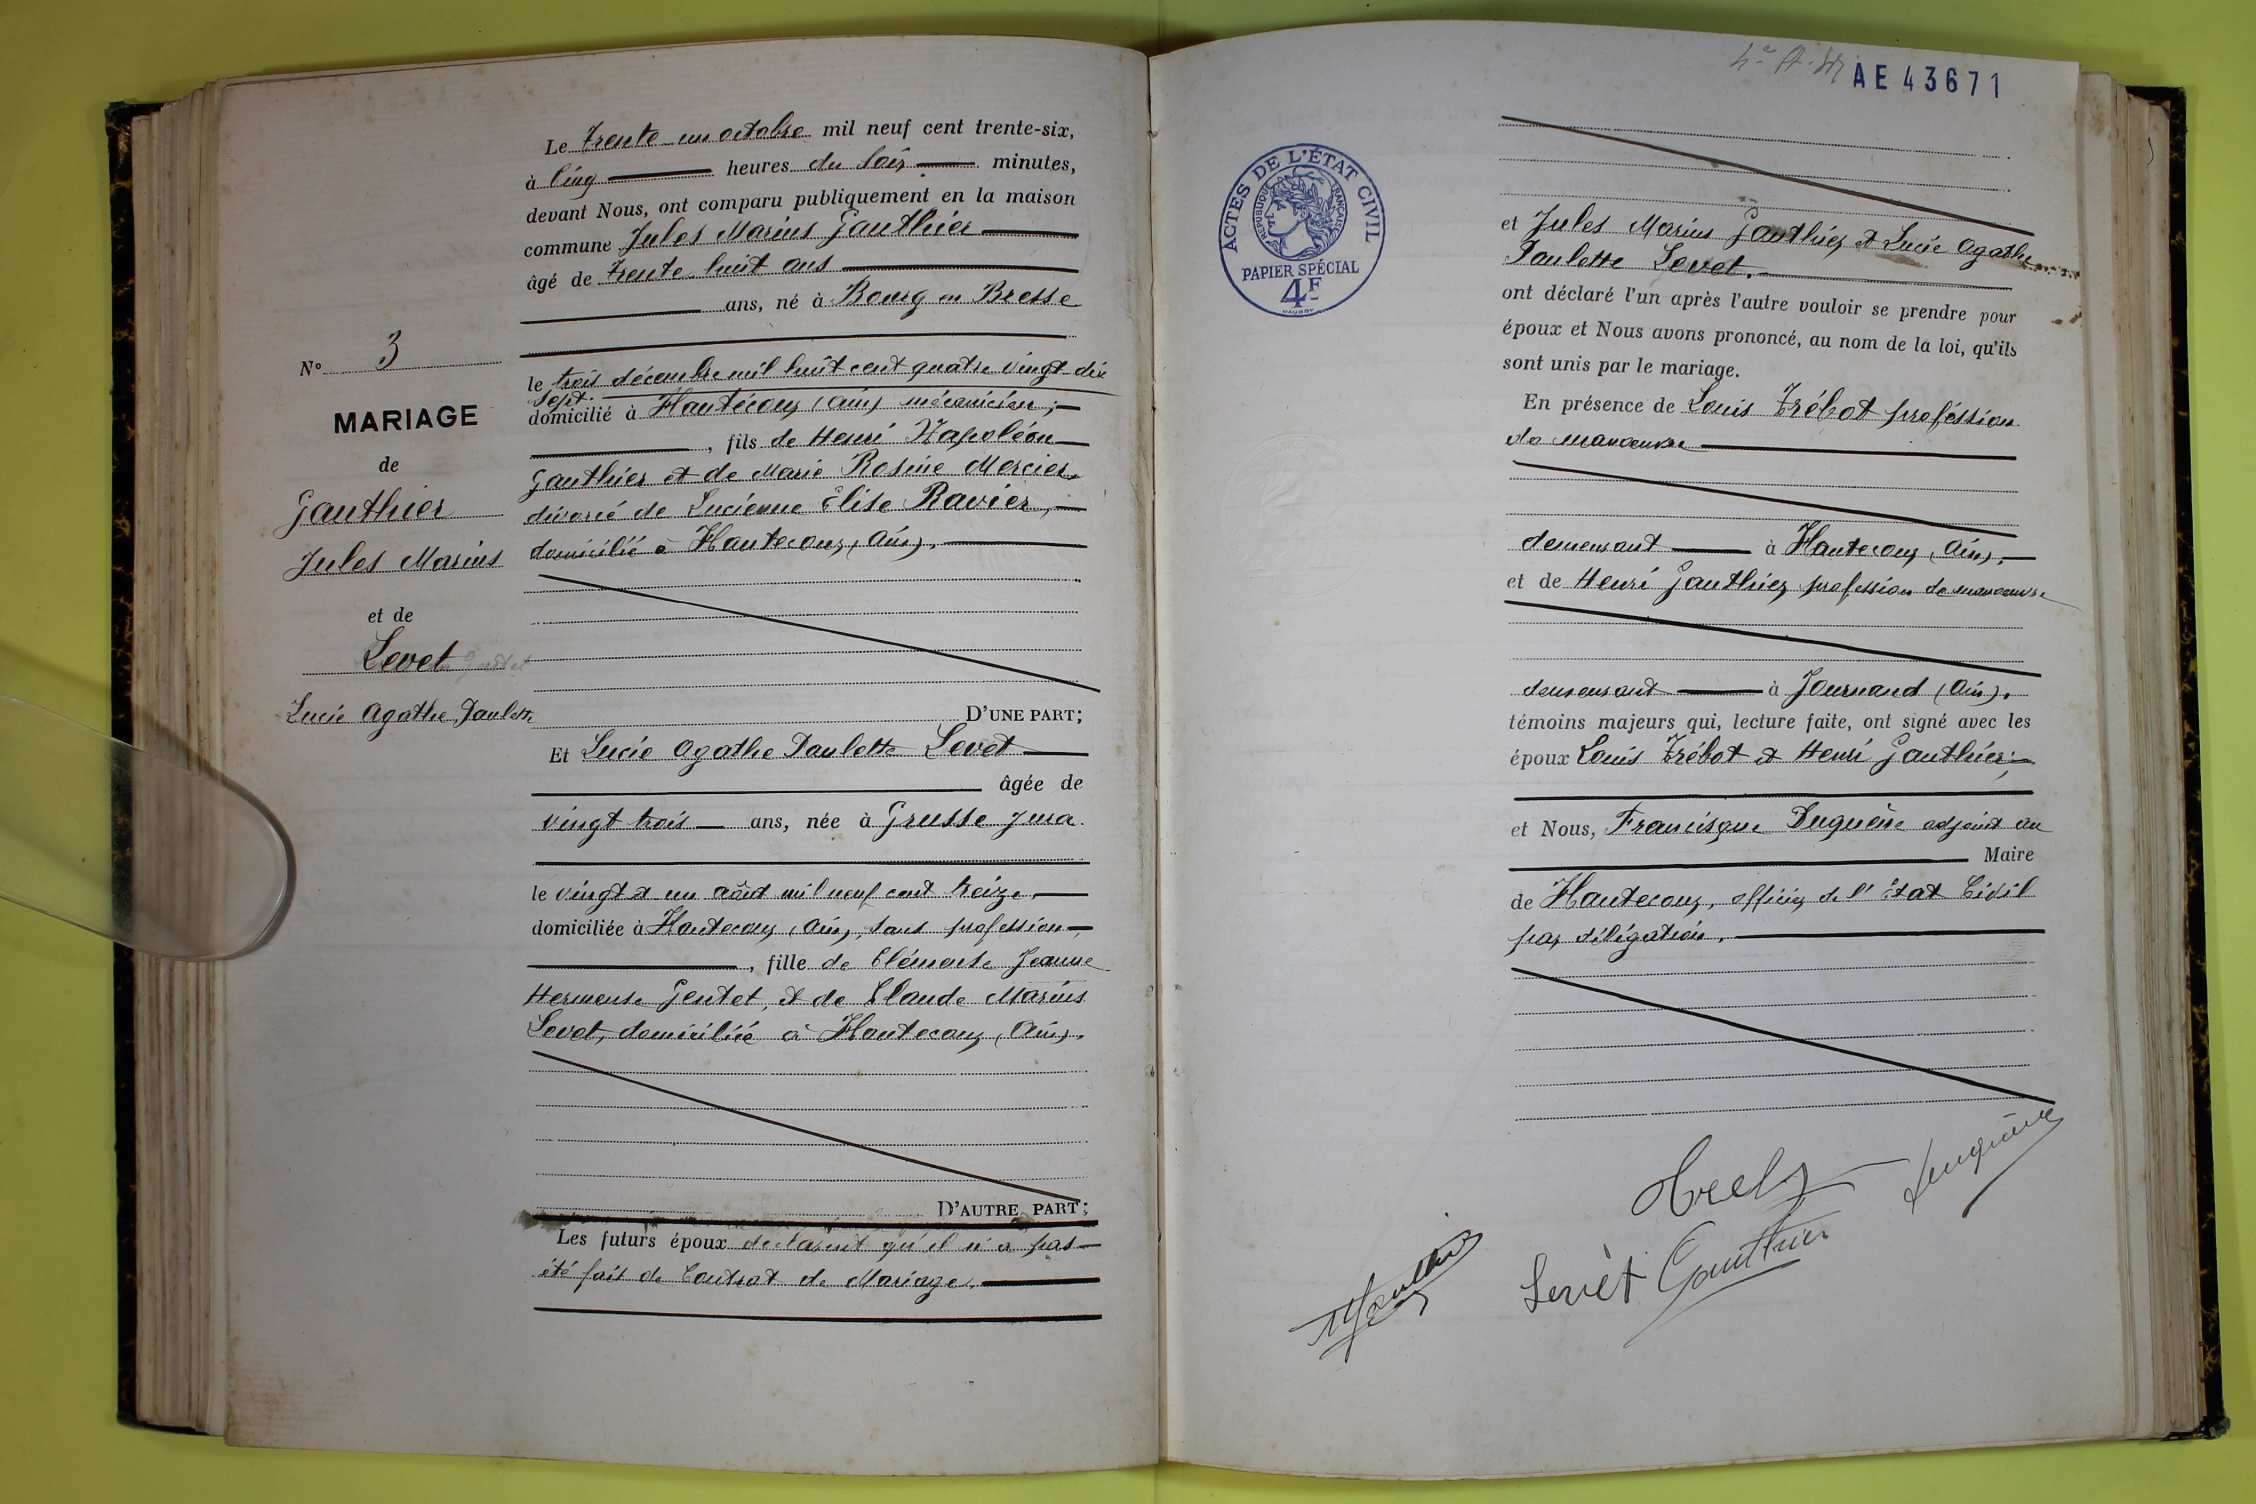 Le trente un octobre mil neuf cent trente-six,
à Cinq heures du soir minutes,
devant Nous, ont comparu publiquement en la maison
commune Jules Marius Gauthier
âgé de trente huit ans
ans, né à Bourg en Bresse
le trois décembre mil huit cent quatre vingt dix
sept.
domicilié à Hautecour (Ain) mécanicien ;
, fils de Henri Napoléon
Gauthier et de Marie Rosine Mercier
divorcé de Lucienne Elise Ravier,
domicilié à Hautecour (Ain).
D'UNE PART;
Et Lucie Agathe Paulette Levet
âgée de
vingt trois ans, née à Grusse Jura
le vingt et un août mil neuf cent treize
domiciliée à Hautecour (Ain), sans profession,
, fille de Clémente Jeanne
Hermense Gentet, et de Claude Marius
Levet, domiciliée à Hautecour (Ain).
D'AUTRE PART;
Les futurs époux déclarent qu'il n'a pas
été fait de Contrat de Mariage.
N° 3
MARIAGE
de
Gauthier
Jules Marius
et de
Levet
Lucie Agathe Paulette
AE 43671
ACTES DE L'ÉTAT CIVIL
RÉPUBLIQUE FRANÇAISE
PAPIER SPÉCIAL
4F
et Jules Marius Gauthier et Lucie Agathe
Paulette Levet.
ont déclaré l'un après l'autre vouloir se prendre pour
époux et Nous avons prononcé, au nom de la loi, qu'ils
sont unis par le mariage.
En présence de Louis Trébot proféssion
de manoeuvre
demeurant à Hautecour (Ain),
et de Henri Gauthier profession de manoeuvre
demeurant à Journand (Ain).
témoins majeurs qui, lecture faite, ont signé avec les
époux Louis Trébot et Henri Gauthier ;
et Nous, Francisque Duguène adjoint au
Maire
de Hautecour, officier de l'Etat Civil
par délégation.
Levet Gauthier